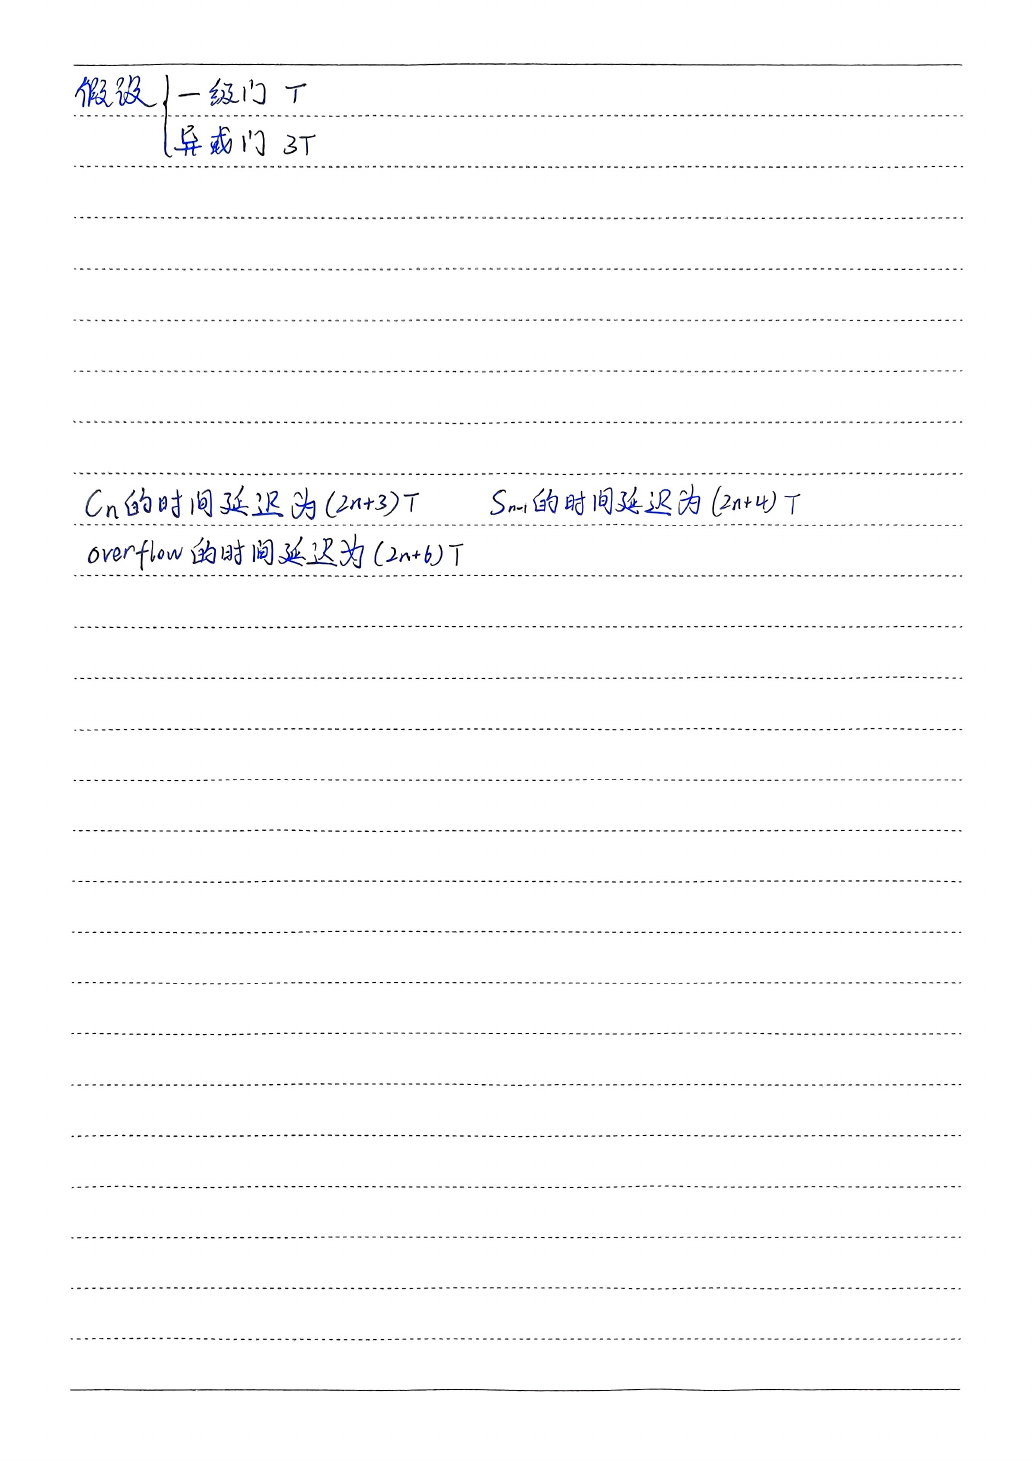 假设{一级门 T
异或门 3T
Cn的时间延迟为(2n+3)T Sn-1的时间延迟为(2n+4)T
overflow的时间延迟为(2n+6)T